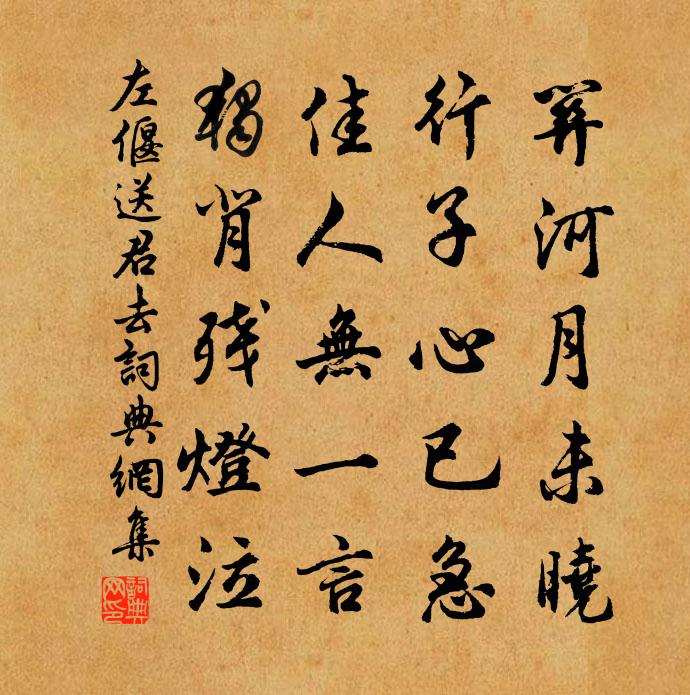 關河月未曉
行子心已急
佳人無一言
獨背残燈泣
左偃送君去詞典網集
詞典网印